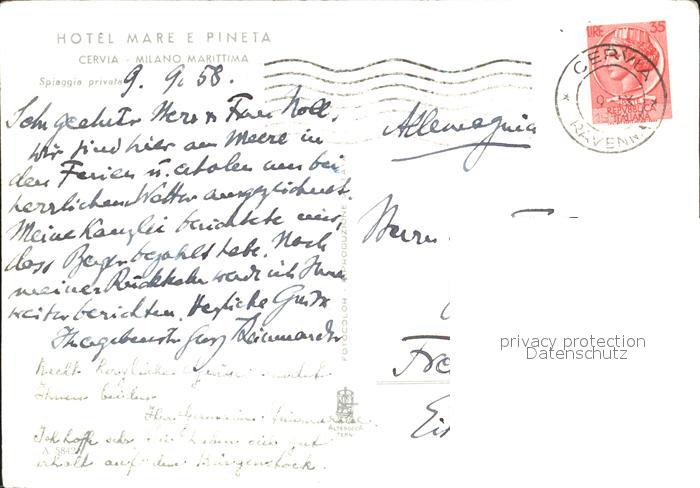 HOTEL MARE E PINETA
CERVIA - MILANO MARITTIMA
Spiaggia privata
9. 9. 58.
Sehr geehrter Herr u Frau Noll.
Wir sind hier am Meere in
den Ferien u. erholen uns bei
herrlichem Wetter ausgezeichnet.
Meine Kanzlei berichtete mir,
dass Berger bezahlt habe. Nach
meiner Rückkehr werde ich Ihnen
weiter berichten. Herzliche Grüsse
Ihr ergebenster
Recht herzliche Grüsse sendet
Ihnen beiden
Ihre
Ich hoffe sehr Sie haben sich gut
erholt auf dem Bürgenstock.
A 5842
FOTOCOLOR RIPRODUZIONE
ALTEROCCA
TERNI
LIRE 35
REPVBBLICA
ITALIANA
CERVIA
RAVENNA
Allemagnia
Herrn
Fre
Eis
privacy protection
Datenschutz